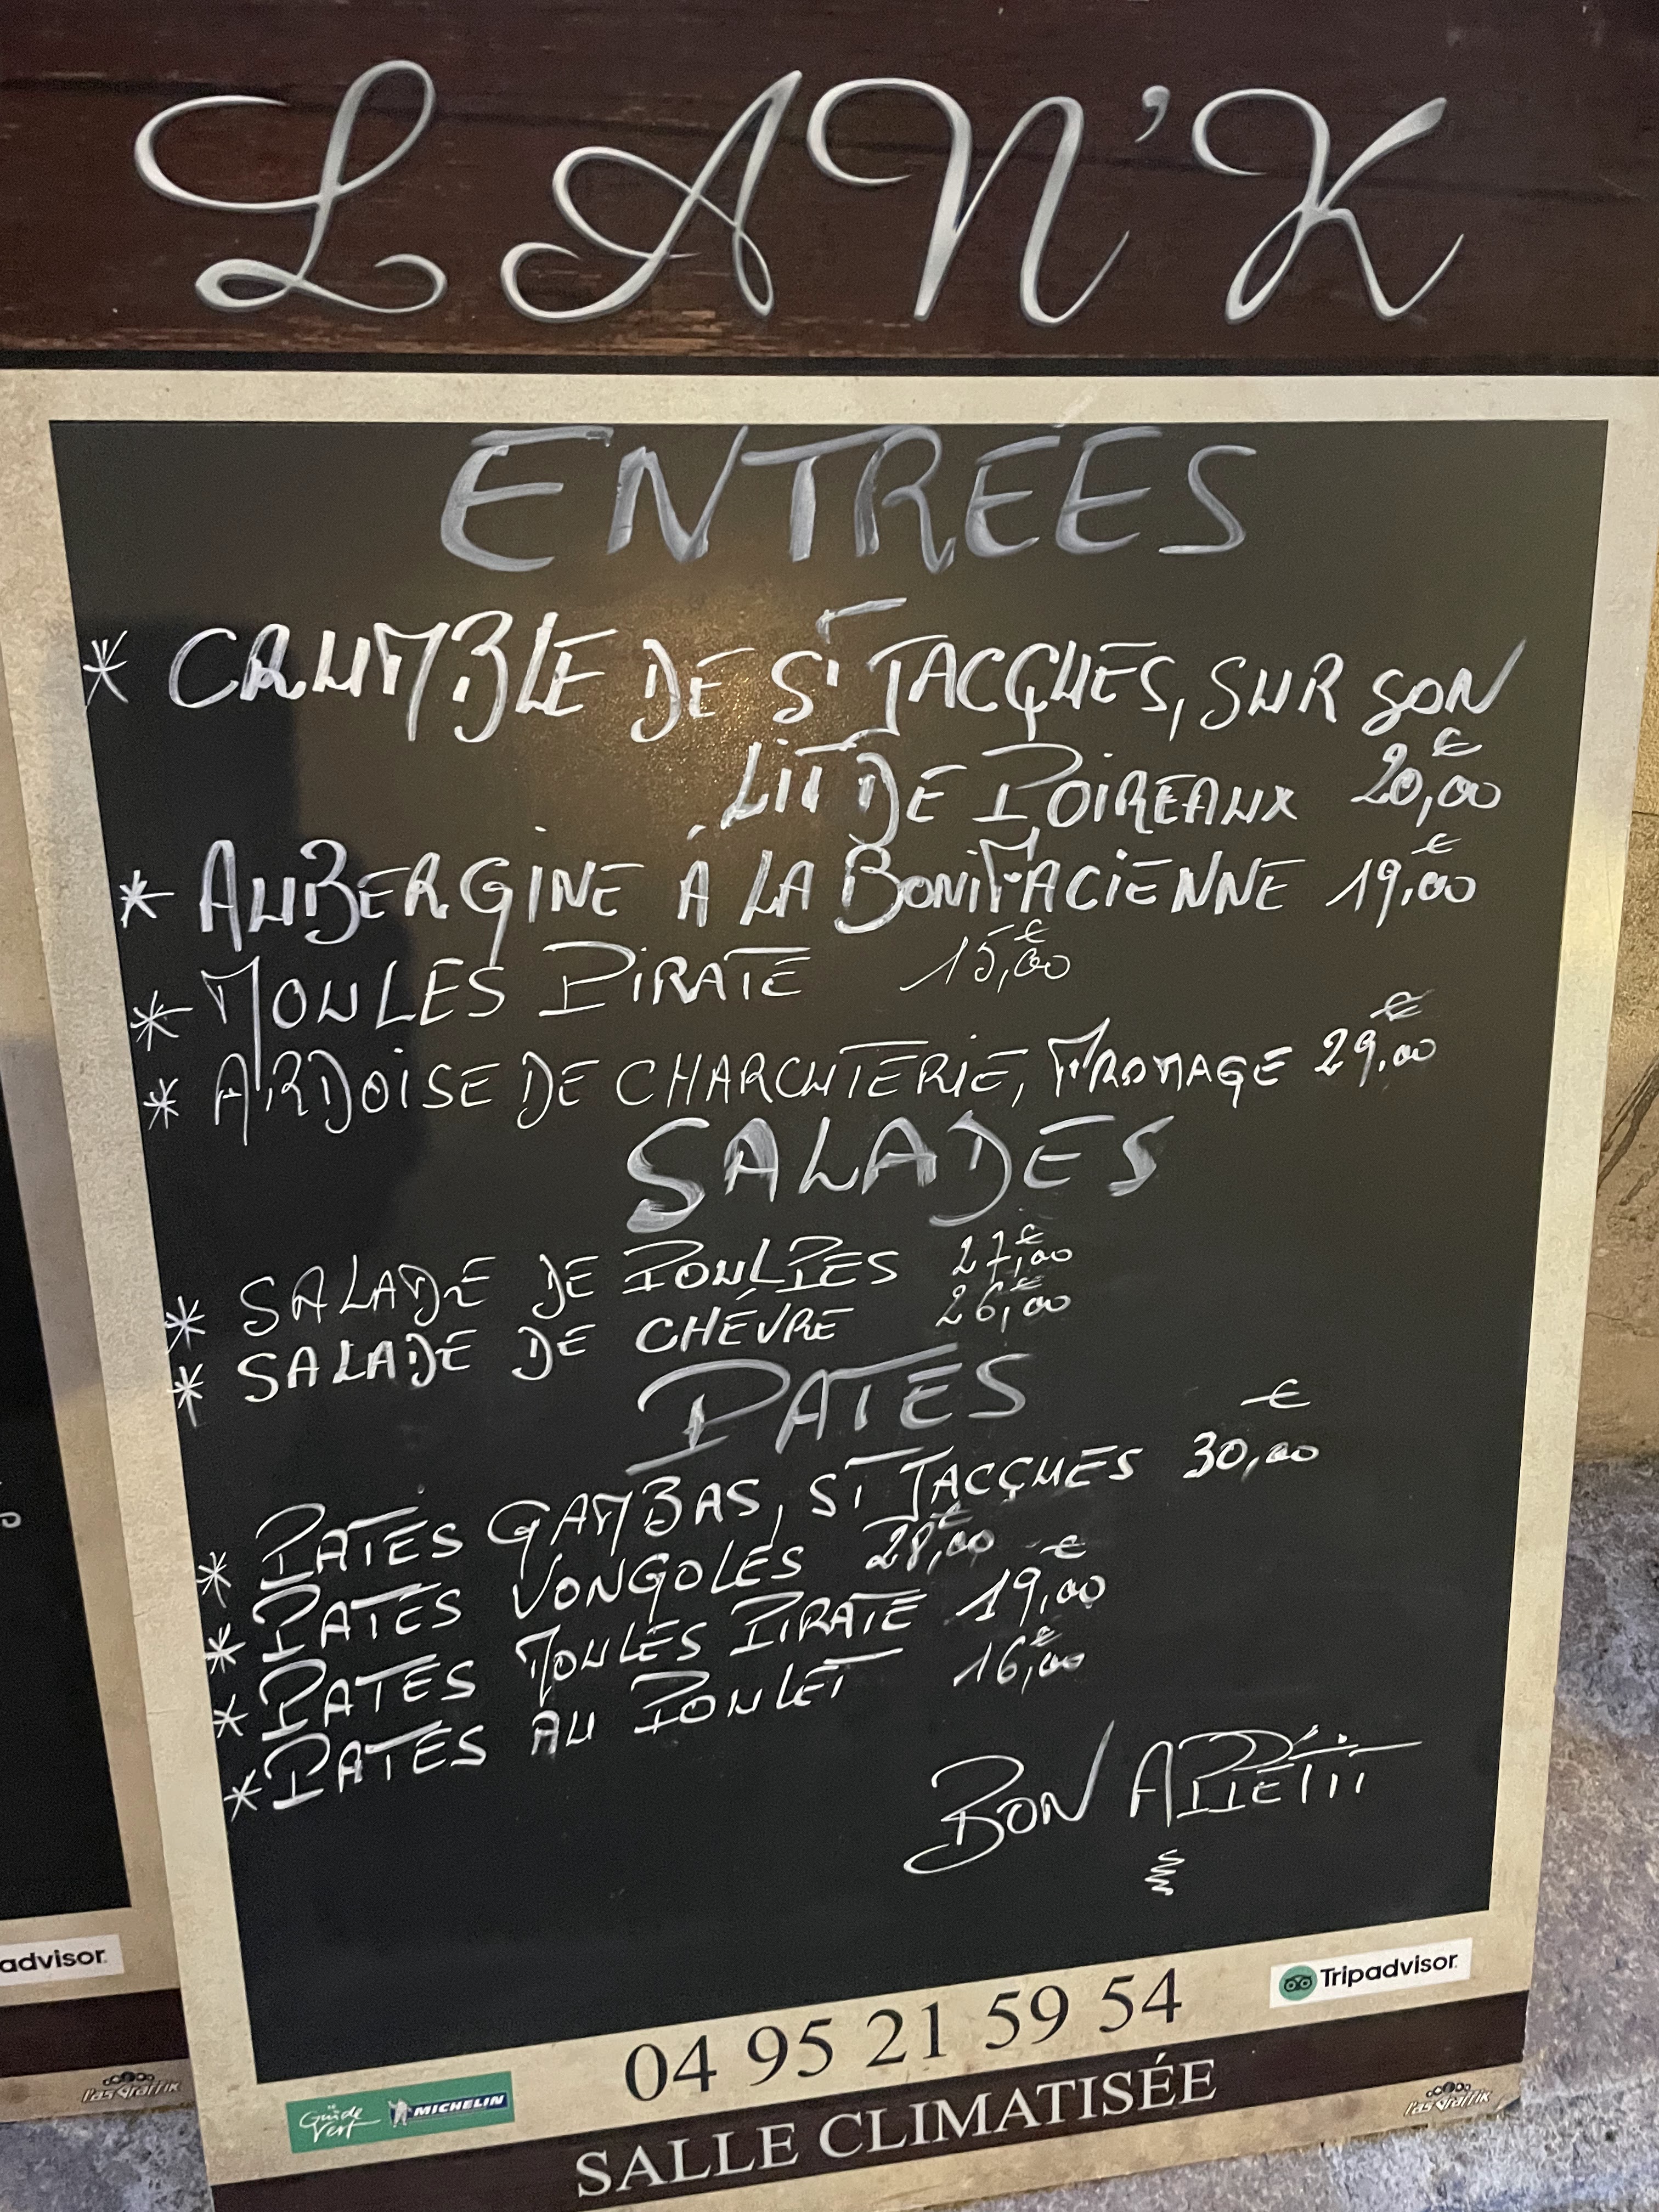 L AN'K
ENTRÉES
* CRUMBLE DE ST JACQUES, SUR SON
LIT DE POIREAUX 20,00€
* AUBERGINE À LA BONIFACIENNE 19,00€
* MOULES PIRATE 15,00€
* ARDOISE DE CHARCUTERIE, FROMAGE 29,00€
SALADES
* SALADE DE POULPES 27,00€
* SALADE DE CHÉVRE 26,00€
PATES
* PATES GAMBAS, ST JACQUES 30,00€
* PATES VONGOLES 28,00€
* PATES MOULES PIRATE 19,00€
* PATES AU POULET 16,00€
BON APPÉTIT
advisor
Tripadvisor
04 95 21 59 54
Guide Vert MICHELIN
SALLE CLIMATISÉE